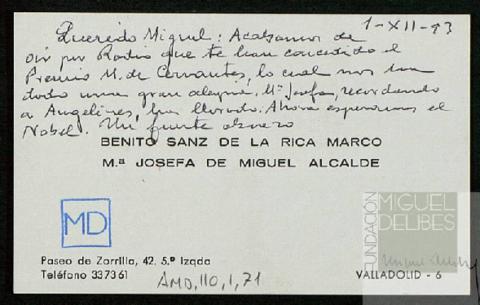 1-XII-93
Querido Miguel: Acabamos de
oir por Radio que te han concedido el
Premio M. de Cervantes, lo cual nos ha
dado una gran alegría. Mª Josefa, recordando
a Angelines, ha llorado. Ahora esperamos el
Nobel. Un fuerte abrazo
BENITO SANZ DE LA RICA MARCO
M.ª JOSEFA DE MIGUEL ALCALDE
MD
Paseo de Zorrilla, 42. 5.º Izqda
Teléfono 337361
AMD,110,1,71
VALLADOLID - 6
FUNDACIÓN
MIGUEL
DELIBES